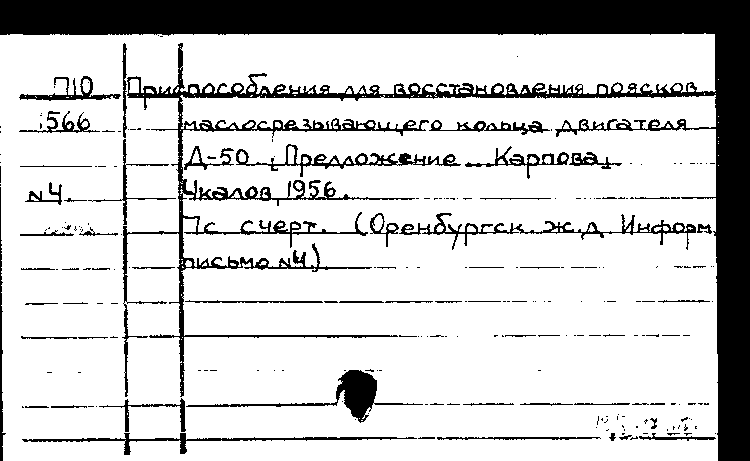 П10 Приспособления для восстановления поясков
566 маслосрезывающего кольца двигателя
Д-50 [Предложение ... Карпова]
№4. Чкалов, 1956.
7с счерт. (Оренбургск. ж.д. Информ.
письмо №4)